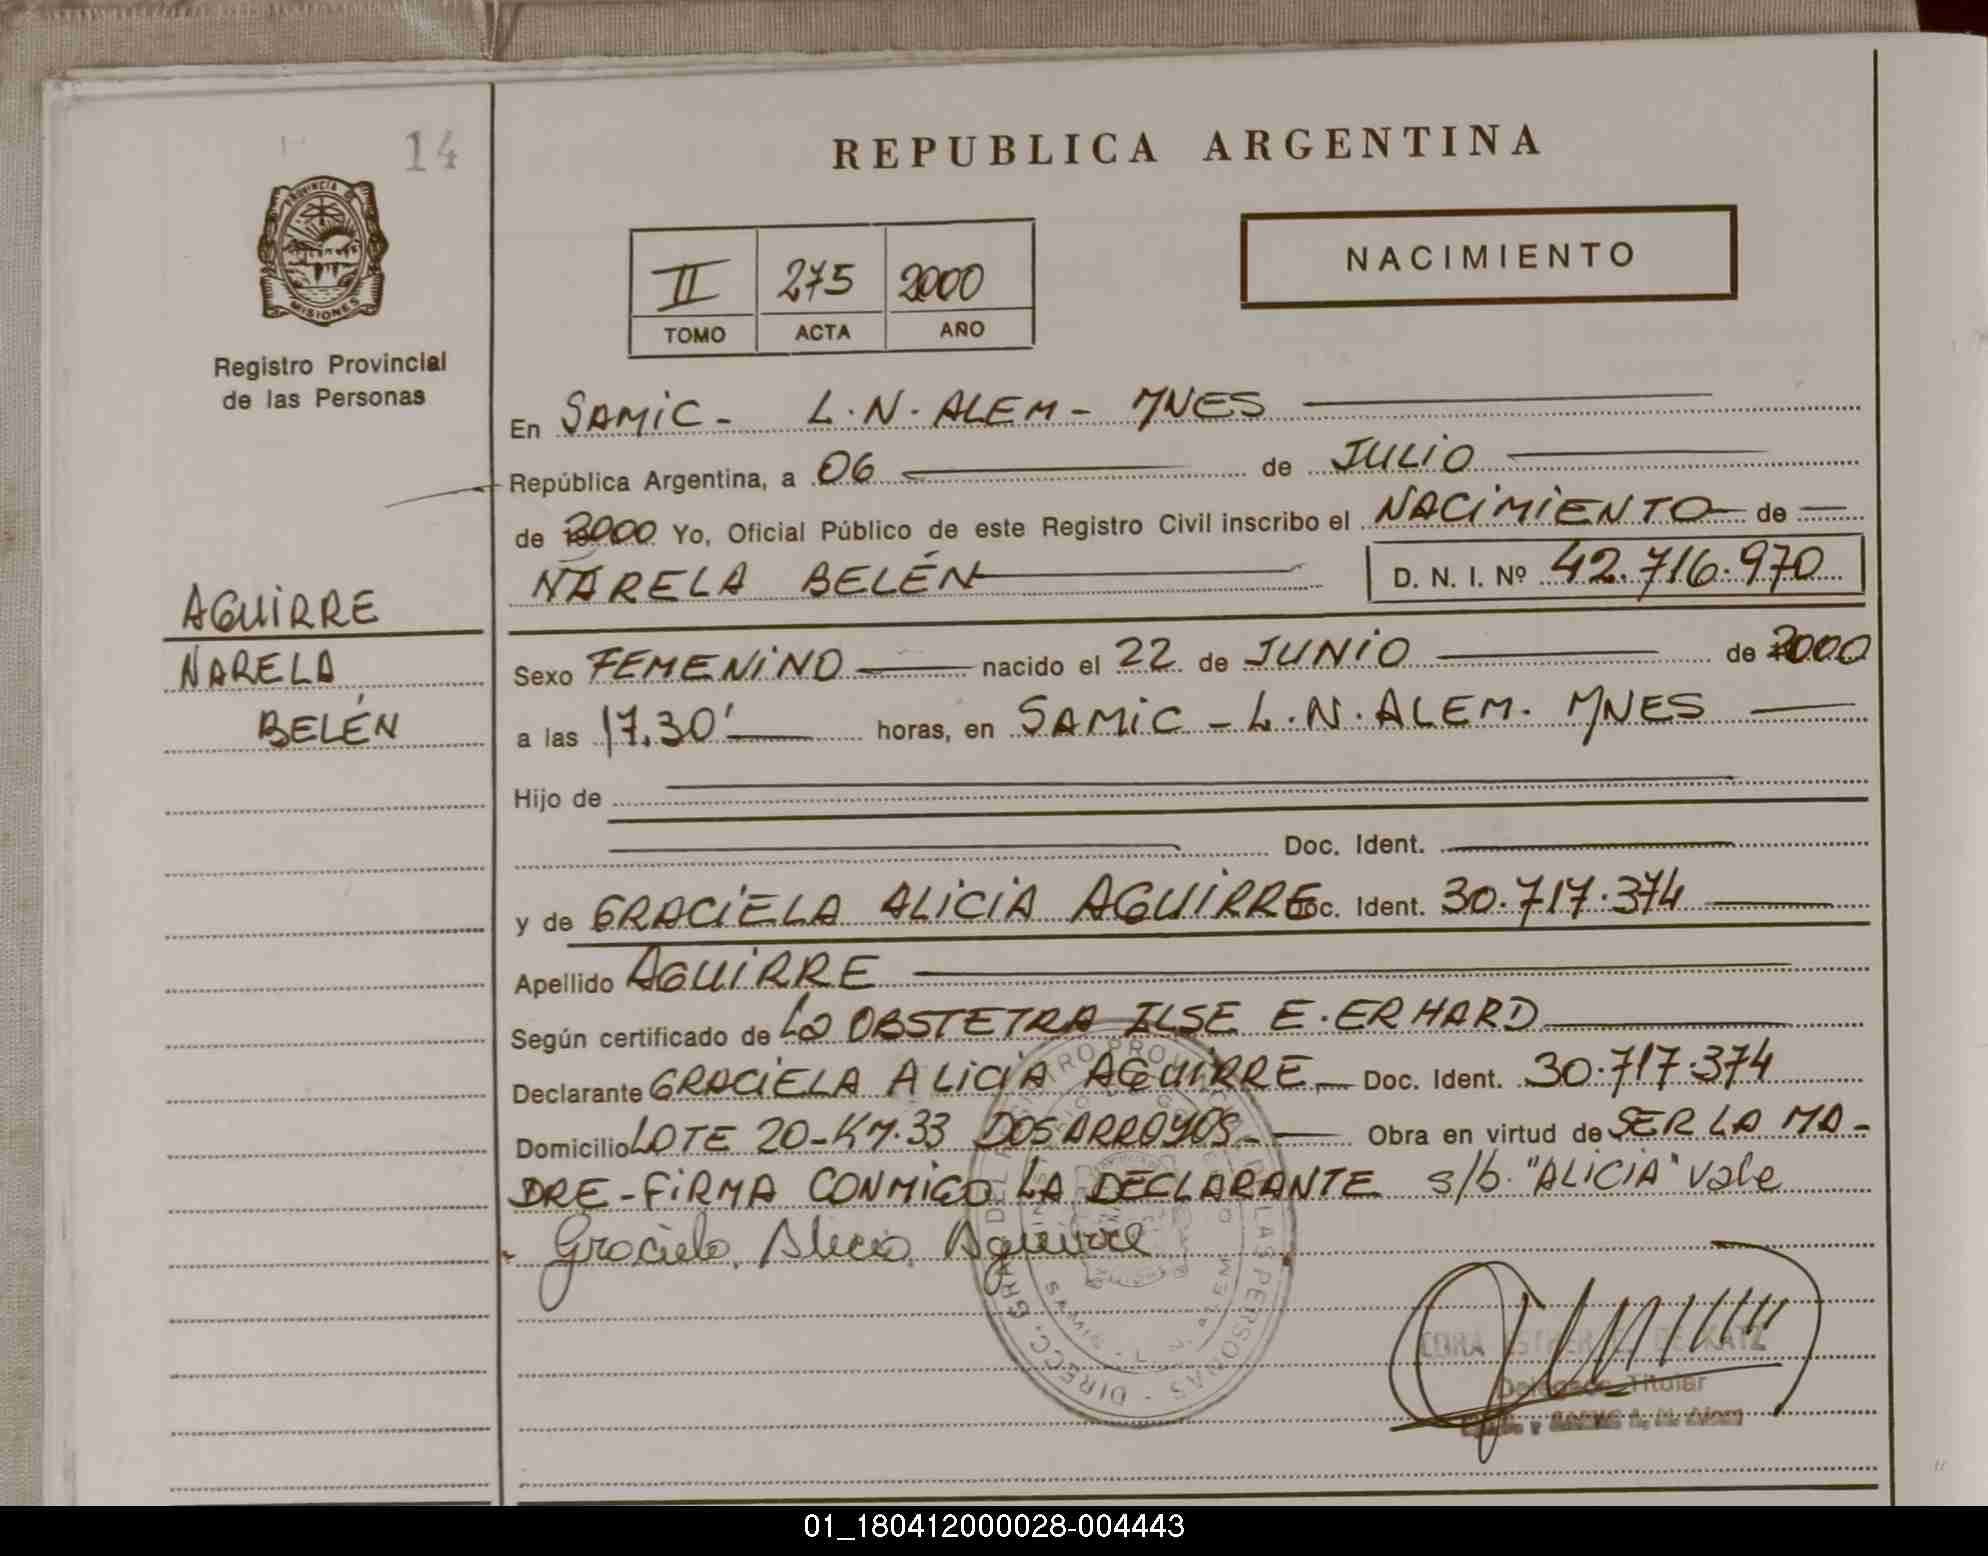 14
PROVINCIA DE
MISIONES
Registro Provincial
de las Personas
AGUIRRE
NARELA
BELÉN
REPUBLICA ARGENTINA
II 275 2000
TOMO ACTA AÑO
NACIMIENTO
En SAMIC - L.N. ALEM - MNES
República Argentina, a 06 de JULIO
de 2000 Yo, Oficial Público de este Registro Civil inscribo el NACIMIENTO de
NARELA BELÉN D. N. I. Nº 42.716.970
Sexo FEMENINO nacido el 22 de JUNIO de 2000
a las 17.30' horas, en SAMIC - L.N. ALEM. MNES
Hijo de
Doc. Ident.
y de GRACIELA ALICIA AGUIRRE Doc. Ident. 30.717.374
Apellido AGUIRRE
Según certificado de La OBSTETRA ILSE E. ERHARD
Declarante GRACIELA ALICIA AGUIRRE Doc. Ident. 30.717.374
Domicilio LOTE 20-KM.33 DOS ARROYOS - Obra en virtud de SER LA MA-
DRE - FIRMA CONMIGO LA DECLARANTE s/b. "ALICIA" Vale
Graciela Alicia Aguirre
DE LAS PERSONAS - DIRECC. GRAL. DEL
Delegado Titular
01_180412000028-004443